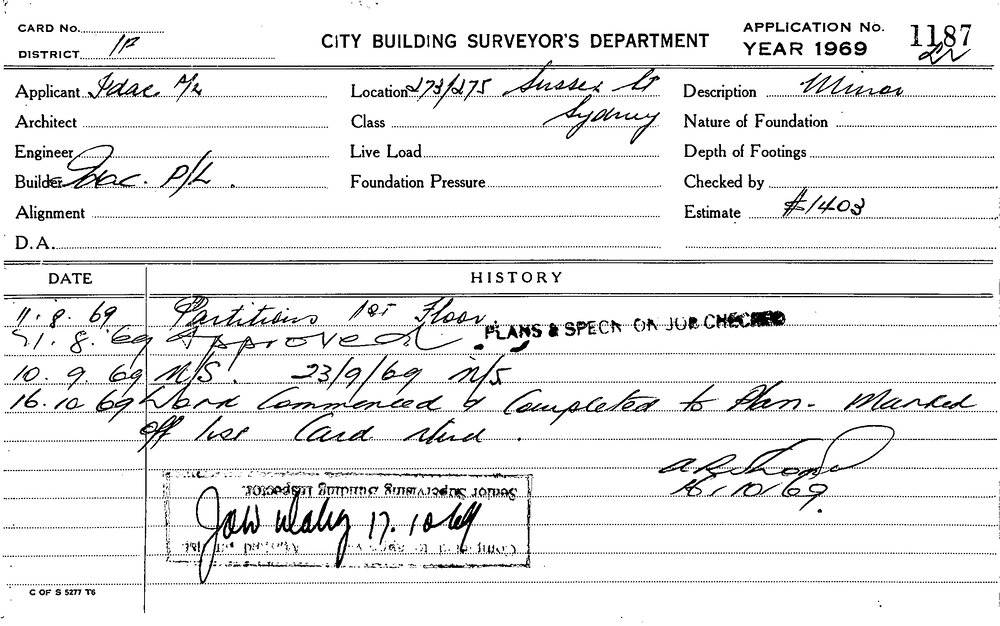 CARD No.
DISTRICT
CITY BUILDING SURVEYOR'S DEPARTMENT
APPLICATION No. 1187
YEAR 1969
Applicant Idac P/L
Location 273/275 Sussex St
Sydney
Description Minor
Architect
Class
Nature of Foundation
Engineer
Live Load
Depth of Footings
Builder Idac. P/L.
Foundation Pressure
Checked by
Alignment
Estimate $1403
D.A.
DATE HISTORY
11.8.69 Partitions 1st Floor
21.8.69 Approved PLANS & SPECN ON JOB CHECKED
10.9.69 N/S. 23/9/69 N/S
16.10.69 Work Commenced & Completed to Plan. Marked
off Card
16/10/69.
Senior Supervising Building Inspector.
17.10.69
C OF S 5277 T6